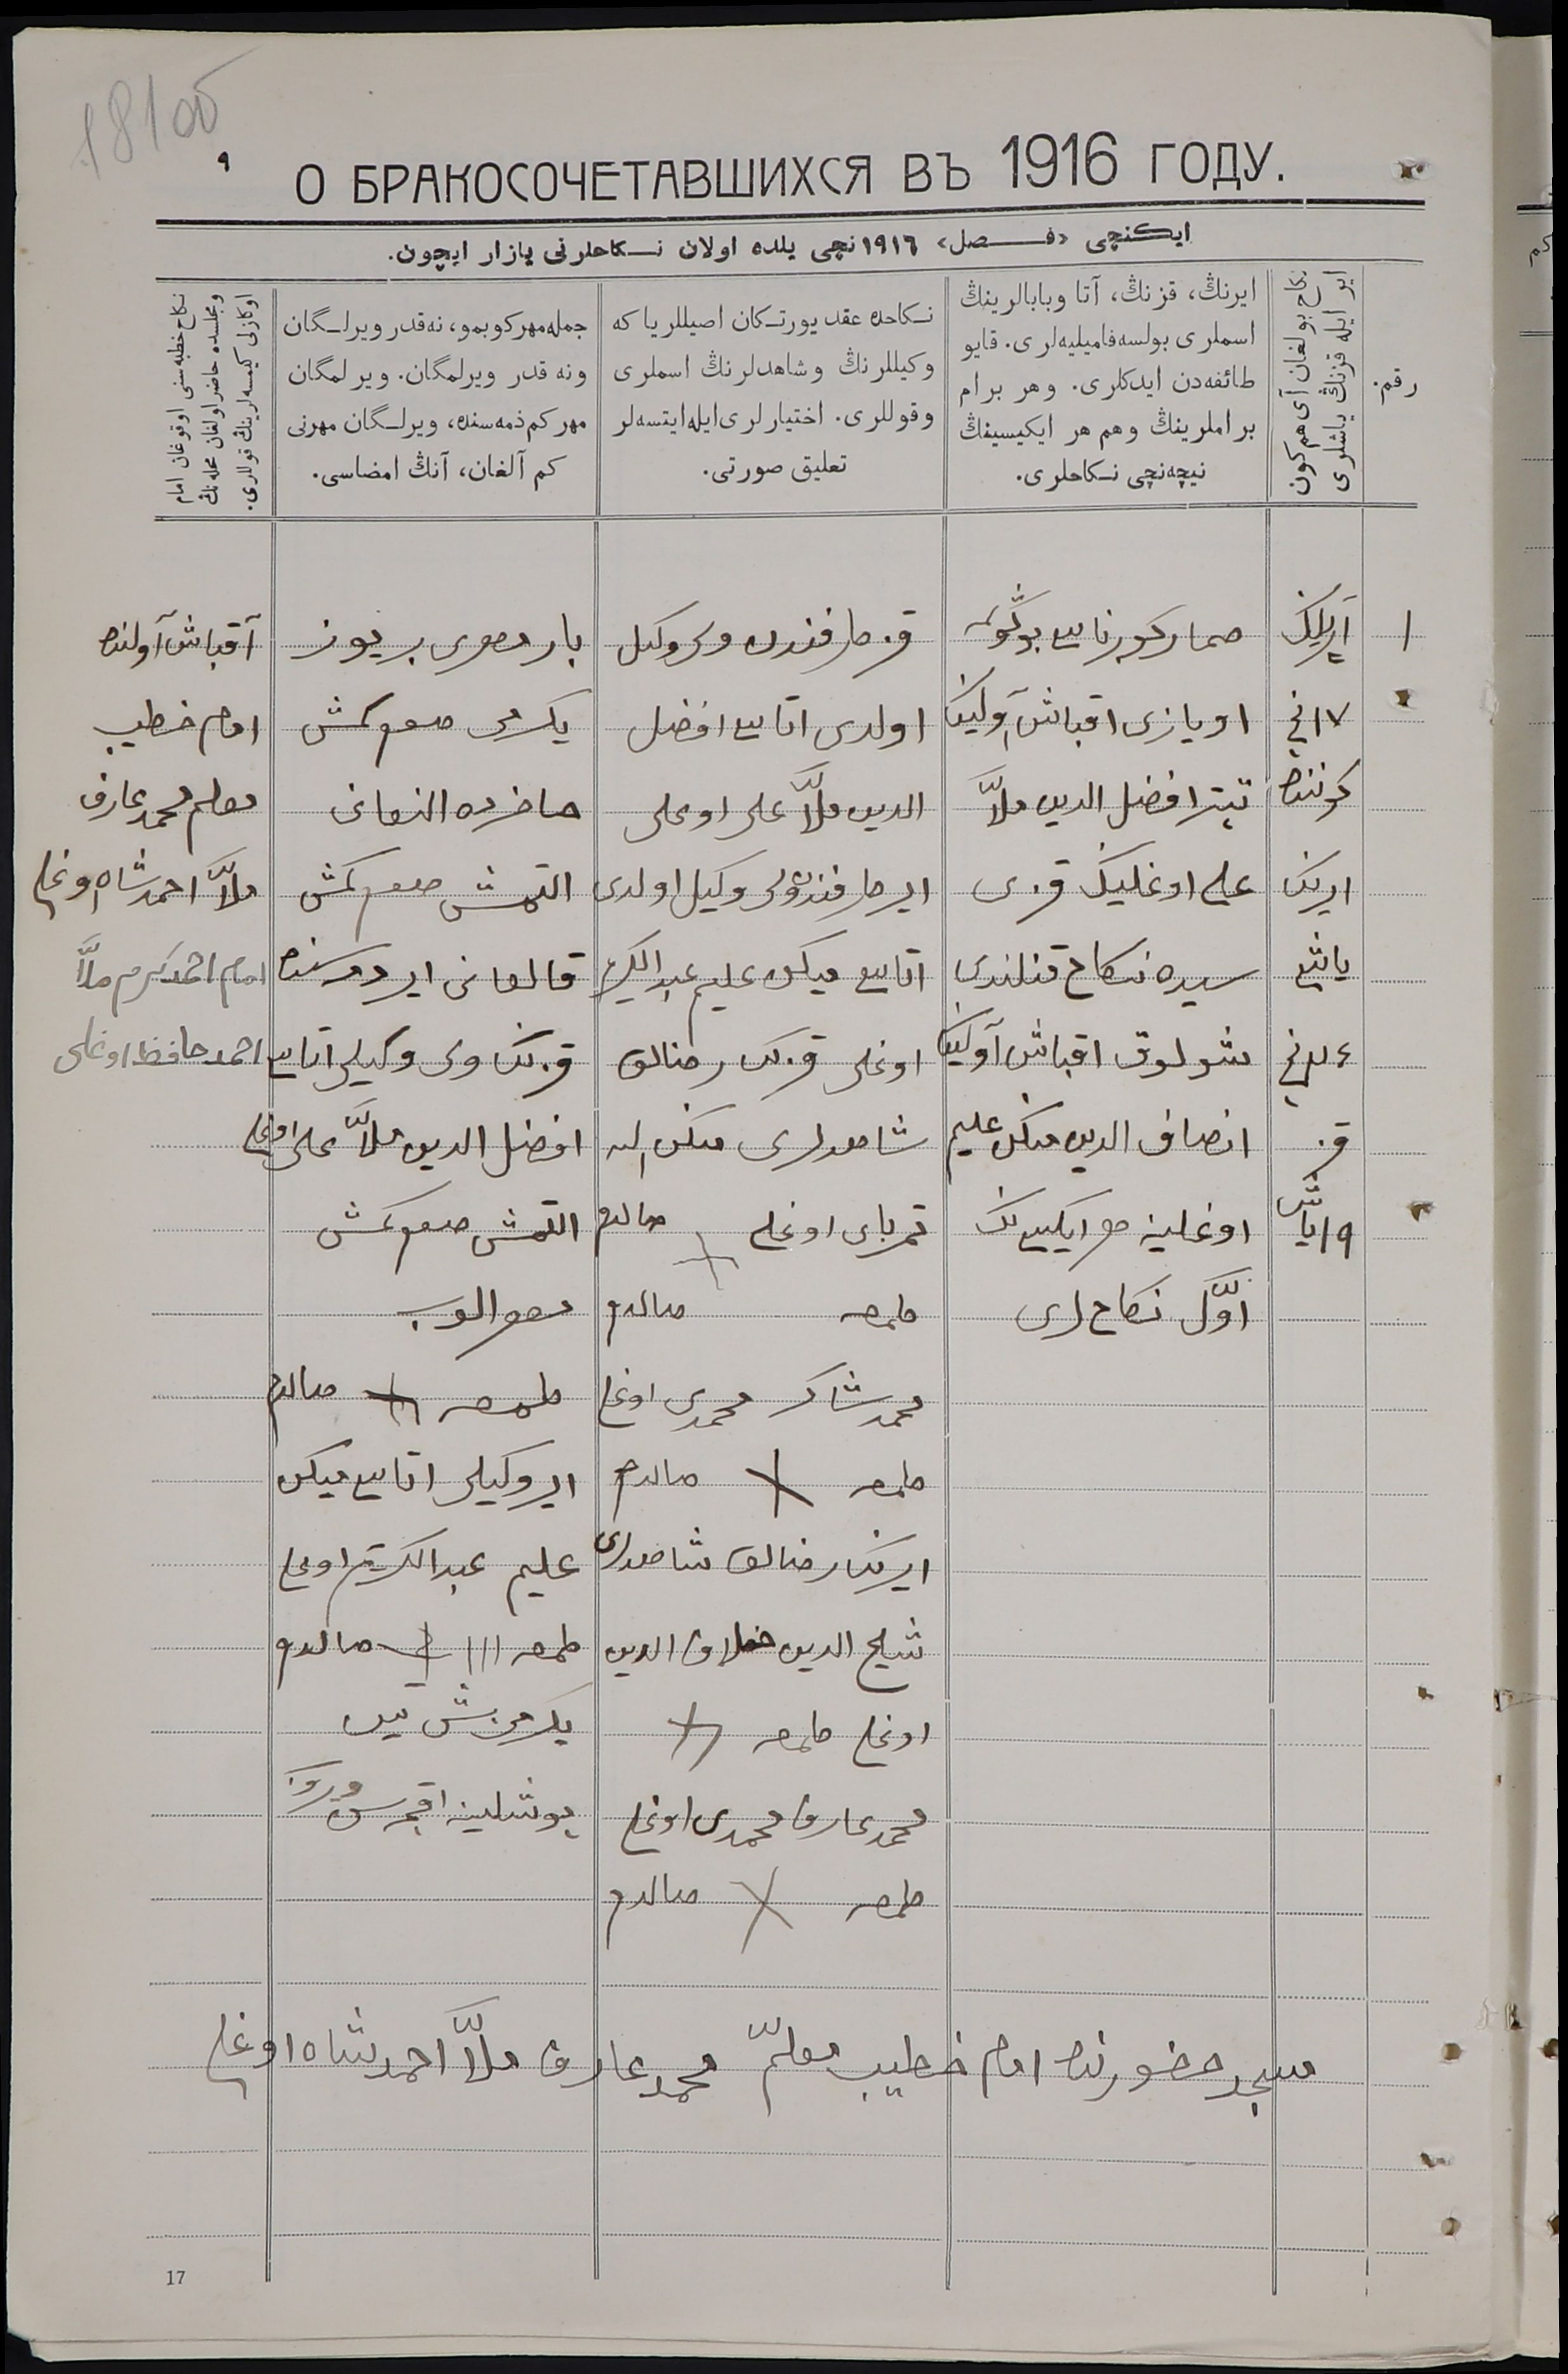 181об
٩
О БРАКОСОЧЕТАВШИХСЯ ВЪ 1916 ГОДУ.
ایكنچی «فـصل» ١٩١٦ نچی یلده اولان نـكاحلرنی یازار ایچون.
رقم.
نكاح بولغان آی هم كون
ایر ایله قزنڭ یاشلری
ایرنڭ، قزنڭ، آتا وبابالرینڭ
اسملری بولسه فامیلیه‌لری. قایو
طائفه‌دن ایدكلری. وهر برام
براملرینڭ وهم هر ایكیسینڭ
نیچه‌نچی نـكاحلری.
نـكاحده عقد یورتـكان اصیللر یا كه
وكیللرنڭ وشاهدلرنڭ اسملری
وقوللری. اختیارلری ایله ایتسه‌لر
تعلیق صورتی.
جمله مهر كوبمو، نه‌قدر ویرلـگان
ونه قدر ویرلمگان. ویرلمگان
مهر كم ذمه سنده، ویرلـگان مهرنی
كم آلغان، آنڭ امضاسی.
نكاح خطبه سنی اوقوغان امام
ومجلسده حاضر اولغان محله‌نڭ
اوكازلی كیمسه‌لرینڭ قوللاری.
١
آپریلنڭ
١٧ نچی
كوننده
ایرنڭ
یاشی
٢٤ نچی
قز
١٩ یاش
اویازی اقباش آولینڭ
تیتر افضل الدین ملاّ
علی اوغلینڭ قزی
سیده نكاح قنلندی
شولوق اقباش آولینڭ
انصاف الدین منكل علیم
اوغلینه هر ایكیسینڭ
اوّل نكاح لری
قز طرفندن ولی وكیل
اولدی اتاسی افضل
الدین ملاّ علی اوغلی
ایر طرفندن ولی وكیل اولدی
اتاسی منكل علیم عبدالكریم
اوغلی قزنڭ رضالق
شاهدلری
تمربای اوغلی صالدم
طمغه صالدم
محمدشاكر محمدی اوغلی
طمغه صالدم
ایرنڭ رضالق شاهدلری
شیخ الدین الدین
اوغلی طمغه
محمدعارف محمدی اوغلی
طمغه صالدم
بار مهری بر یوز
یكرمی صوم كمش
حاضرده النغانی
التمش صوم كمش
قالغانی ایر ذمه سنده
قزنڭ ولی وكیلی اتاسی
افضل الدین ملاّ علی اوغلی
التمش صوم كمش
مهر الوب
طمغه صالدم
ایر وكیلی اتاسی منكل
علیم عبدالكریم اوغلی
طمغه ااا صالدم
یكرمی بش تین
پوشلینه اقچه سی
آقباش آولنده
امام خطیب
معلم محمدعارف
ملاّ احمدشاه اوغلی
امام احمدكرم ملاّ
احمد حافظ اوغلی
مسجد حضورنده امام خطیب معلمّ محمدعارف ملاّ احمدشاه اوغلی
17